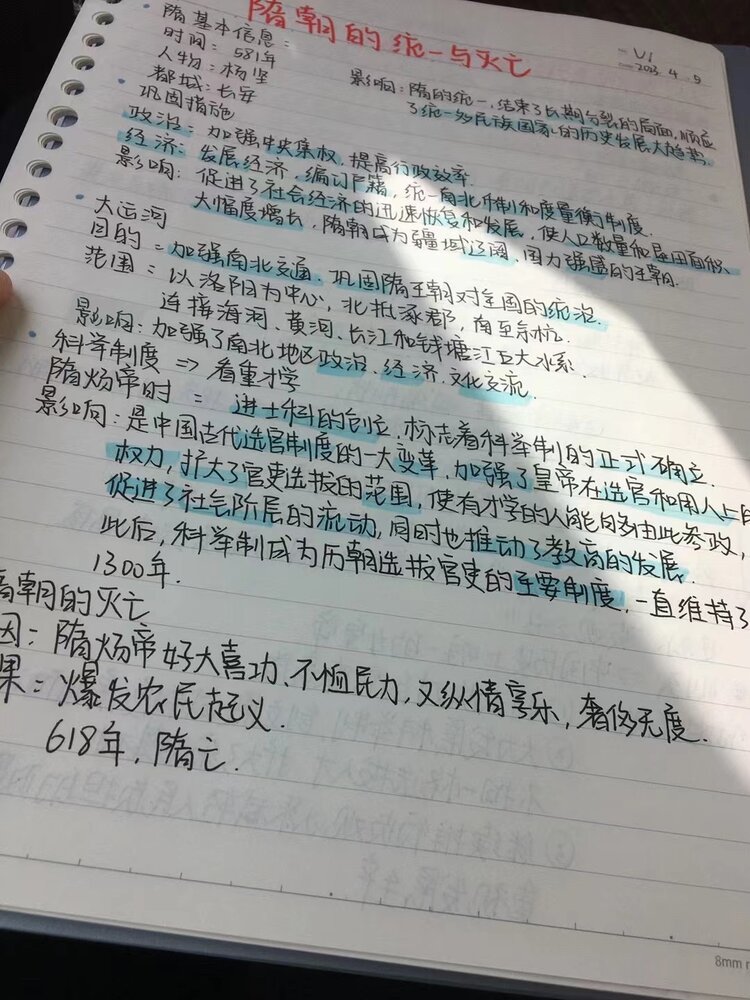 隋朝的统一与灭亡
VI
2023.4.5
隋基本信息:
时间:581年
人物:杨坚
都城:长安
影响:隋的统一,结束了长期分裂的局面,顺应
了统一多民族国家的历史发展大趋势.
巩固措施
政治:加强中央集权,提高行政效率.
经济:发展经济,编订户籍,统一南北币制和度量衡制度.
影响:促进了社会经济的迅速恢复和发展,使人口数量和垦田面积
大幅度增长,隋朝成为疆域辽阔,国力强盛的王朝.
大运河
目的:加强南北交通,巩固隋王朝对全国的统治.
范围:以洛阳为中心,北抵涿郡,南至余杭.
连接海河、黄河、长江和钱塘江五大水系.
影响:加强了南北地区政治、经济、文化交流.
科举制度 => 看重才学
隋炀帝时:进士科的创立,标志着科举制的正式确立.
影响:是中国古代选官制度的一大变革,加强了皇帝在选官和用人上的
权力,扩大了官吏选拔的范围,使有才学的人能够由此参政,
促进了社会阶层的流动,同时也推动了教育的发展.
此后,科举制成为历朝选拔官吏的主要制度,一直维持了
1300年.
隋朝的灭亡
因:隋炀帝好大喜功、不恤民力,又纵情享乐,奢侈无度.
果:爆发农民起义.
618年,隋亡.
8mm r